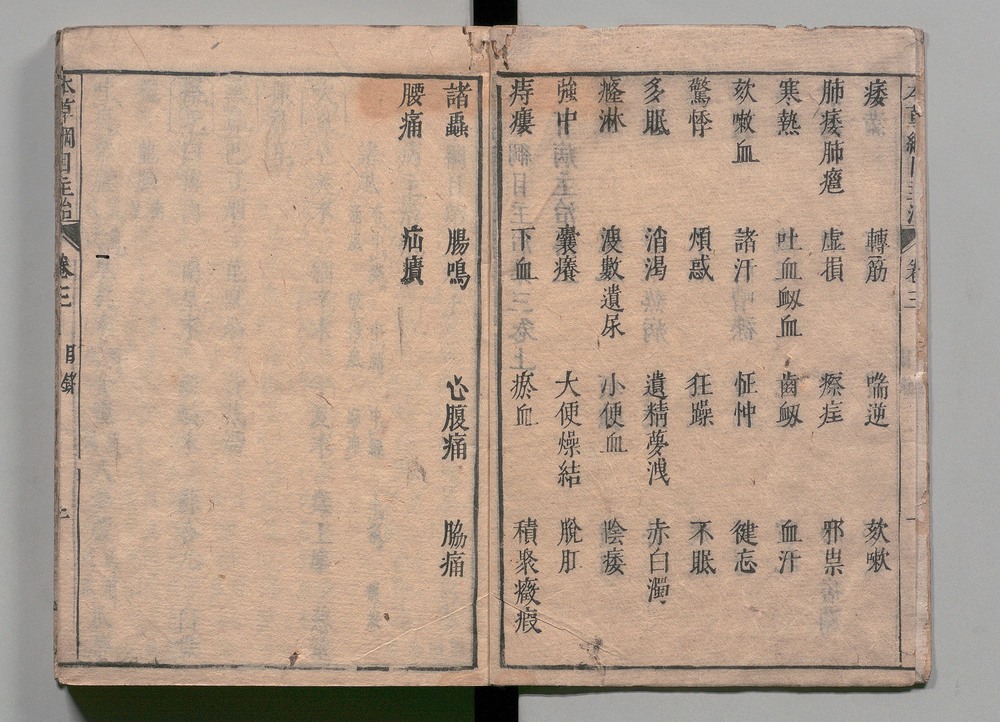 痿 轉筋 喘逆 欬嗽
肺痿肺癰 虛損 瘵疰 邪祟
寒熱 吐血衂血 齒衂 血汗
欬嗽血 諸汗 怔忡 健忘
驚悸 煩惑 狂躁 不眠
多眠 消渴 遺精夢洩 赤白濁
癃淋 溲數遺尿 小便血 陰痿
強中 囊癢 大便燥結 脫肛
痔瘻 下血 瘀血 積聚癥瘕
諸蟲 腸鳴 心腹痛 脇痛
腰痛 疝㿉
本草綱目主治 卷三 目錄